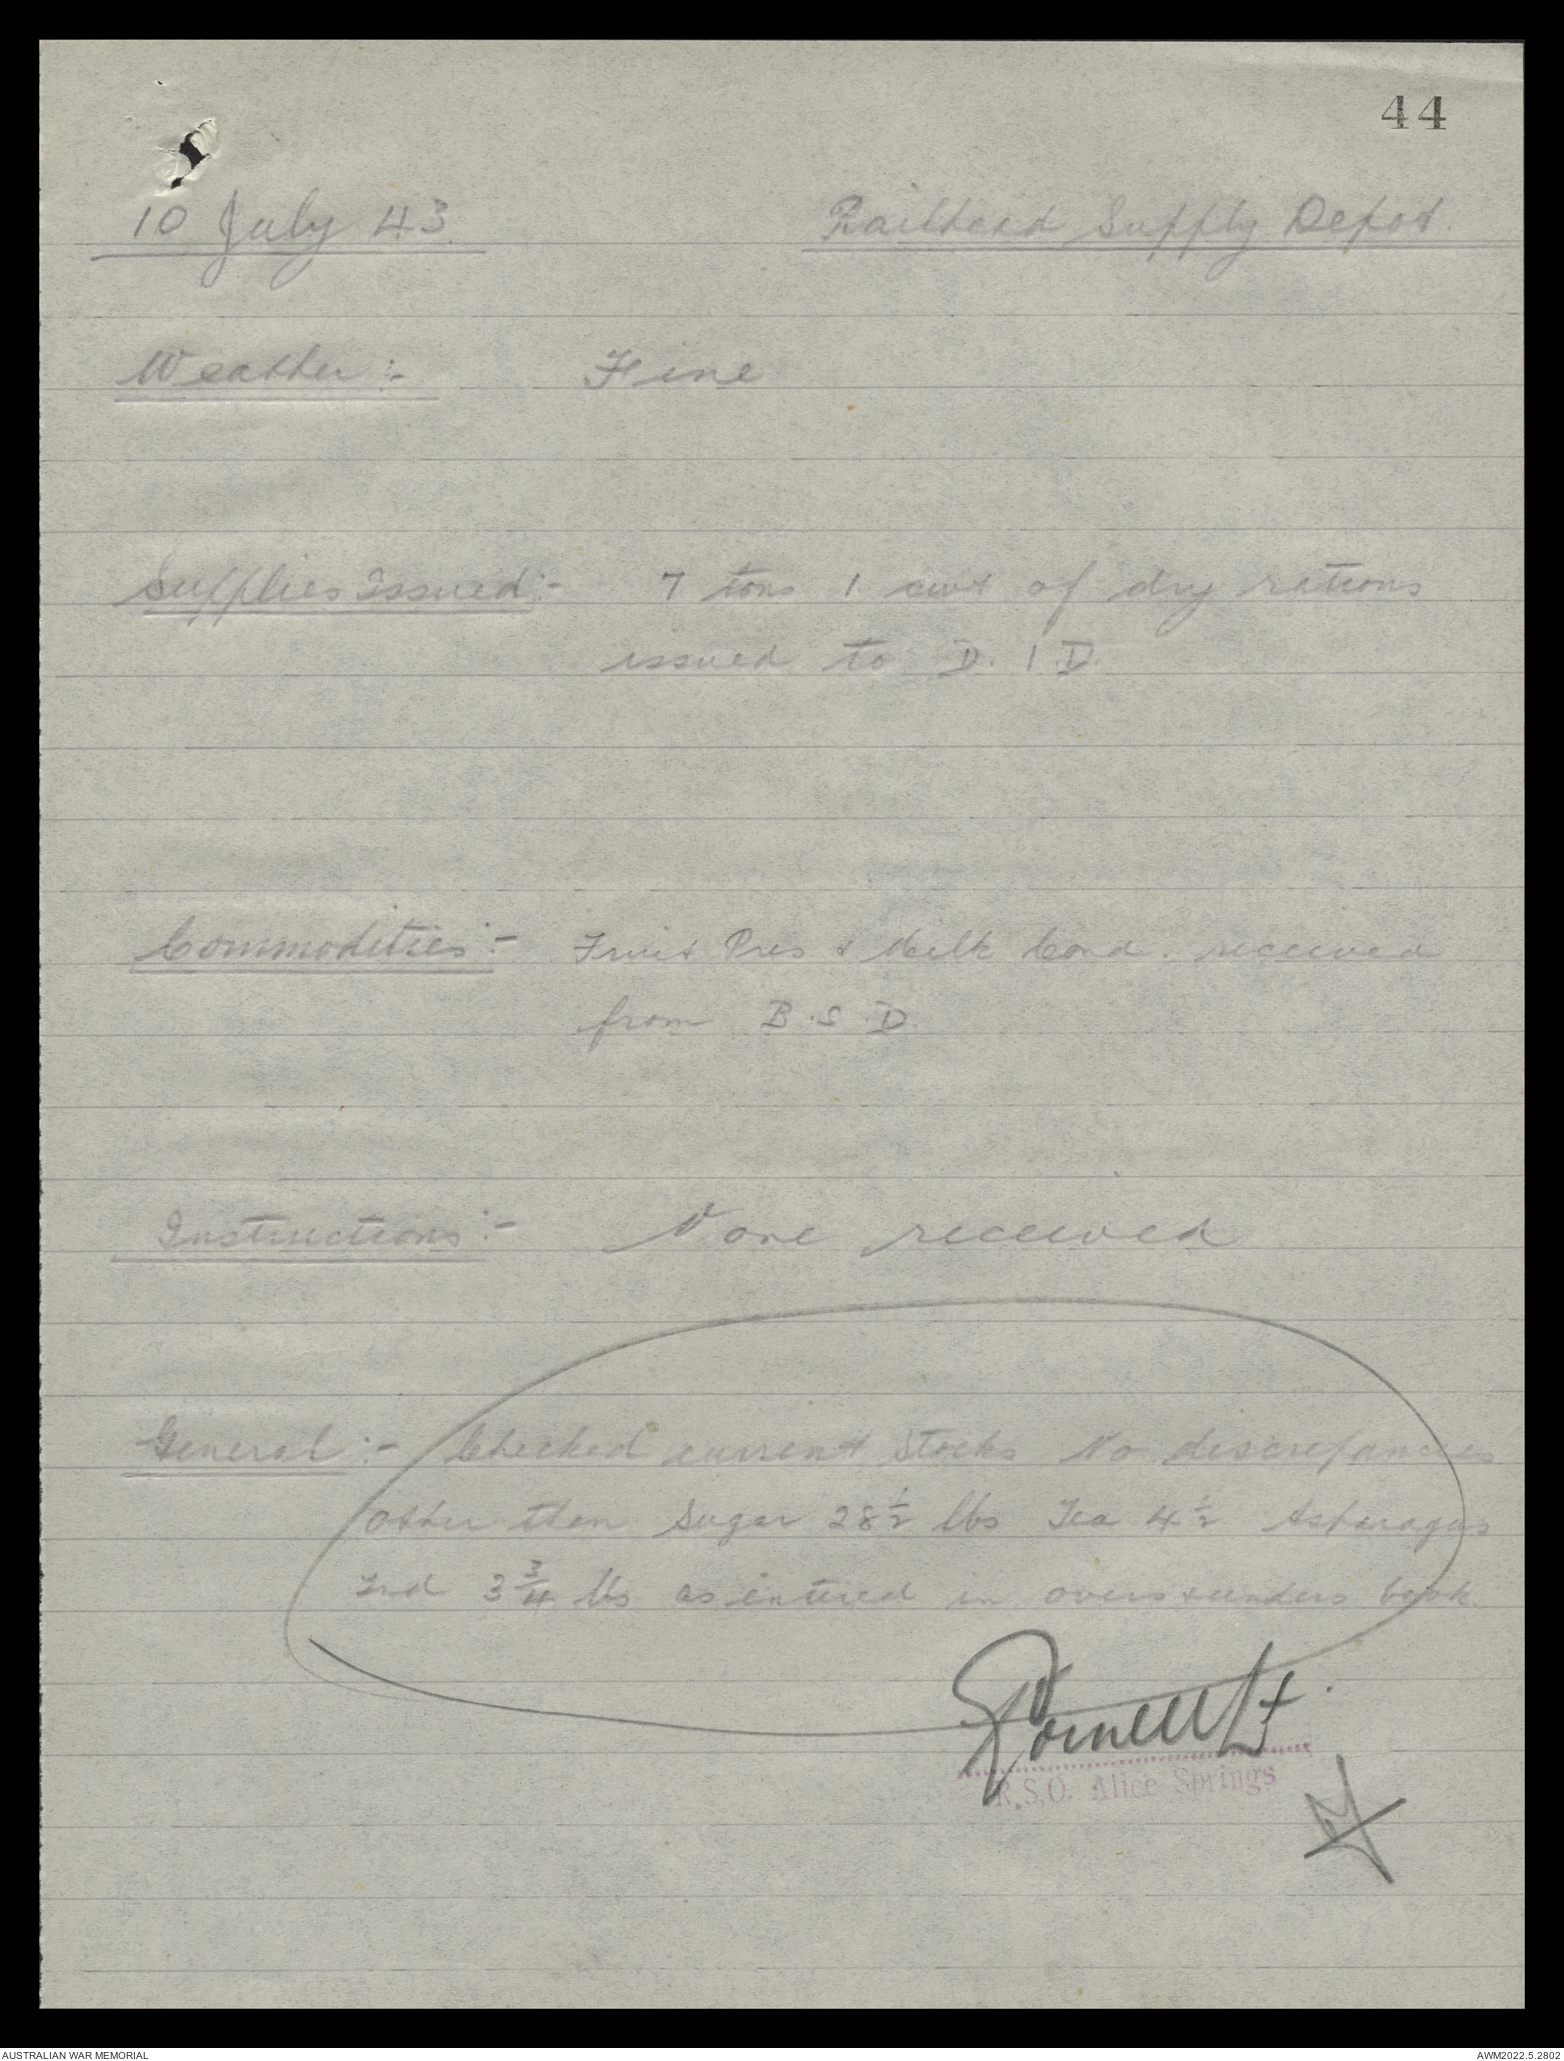 44
10 July 43. Railhead Supply Depot.
Weather:- Fine
Supplies Issued:- 7 tons 1 cwt of dry rations
issued to D.I.D.
Commodities:- Fruit Pres & Milk Cond. received
from B.S.D.
Instructions:- None received
General:- Checked current stocks No discrepancies
other than Sugar 28½ lbs Tea 4½ Asparagus
Tnd 3¾ lbs as entered in overs & unders book.
Lt.
R.S.O. Alice Springs
AUSTRALIAN WAR MEMORIAL
AWM2022.5.2802